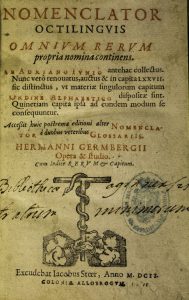 NOMENCLATOR
OCTILINGVIS
OMNIVM RERVM
propria nomina continens.
AB ADRIANO IVNIO antehac collectus.
Nunc verò renouatus, auctus & in capita LXXVII.
sic distinctus, vt materiæ singulorum capitum
ORDINE ALPHABETICO dispositæ sint.
Quinetiam capita ipsa ad eundem modum se
consequuntur.
Accessit huic postremæ editioni alter NOMENCLA-
TOR è duobus veteribus GLOSSARIIS.
HERMANNI GERMBERGII
Opera & studio.
Cum Indice RERVM & Capitum.
Bibliothecæ
fratrum minorum
Excudebat Iacobus Stoer, Anno M. DCII.
COLONIÆ ALLOBROGVM